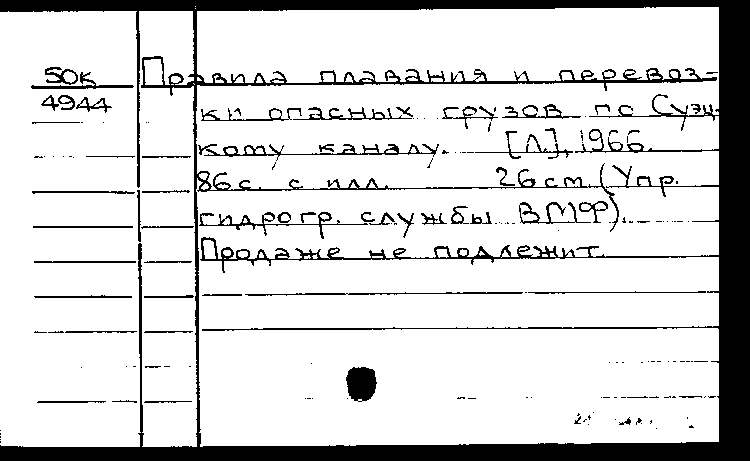 50К Правила плавания и перевоз-
4944 ки опасных грузов по Суэц-
кому каналу. [Л.], 1966.
86 с. с илл. 26 см. (Упр.
гидрогр. службы ВМФ).
Продаже не подлежит.